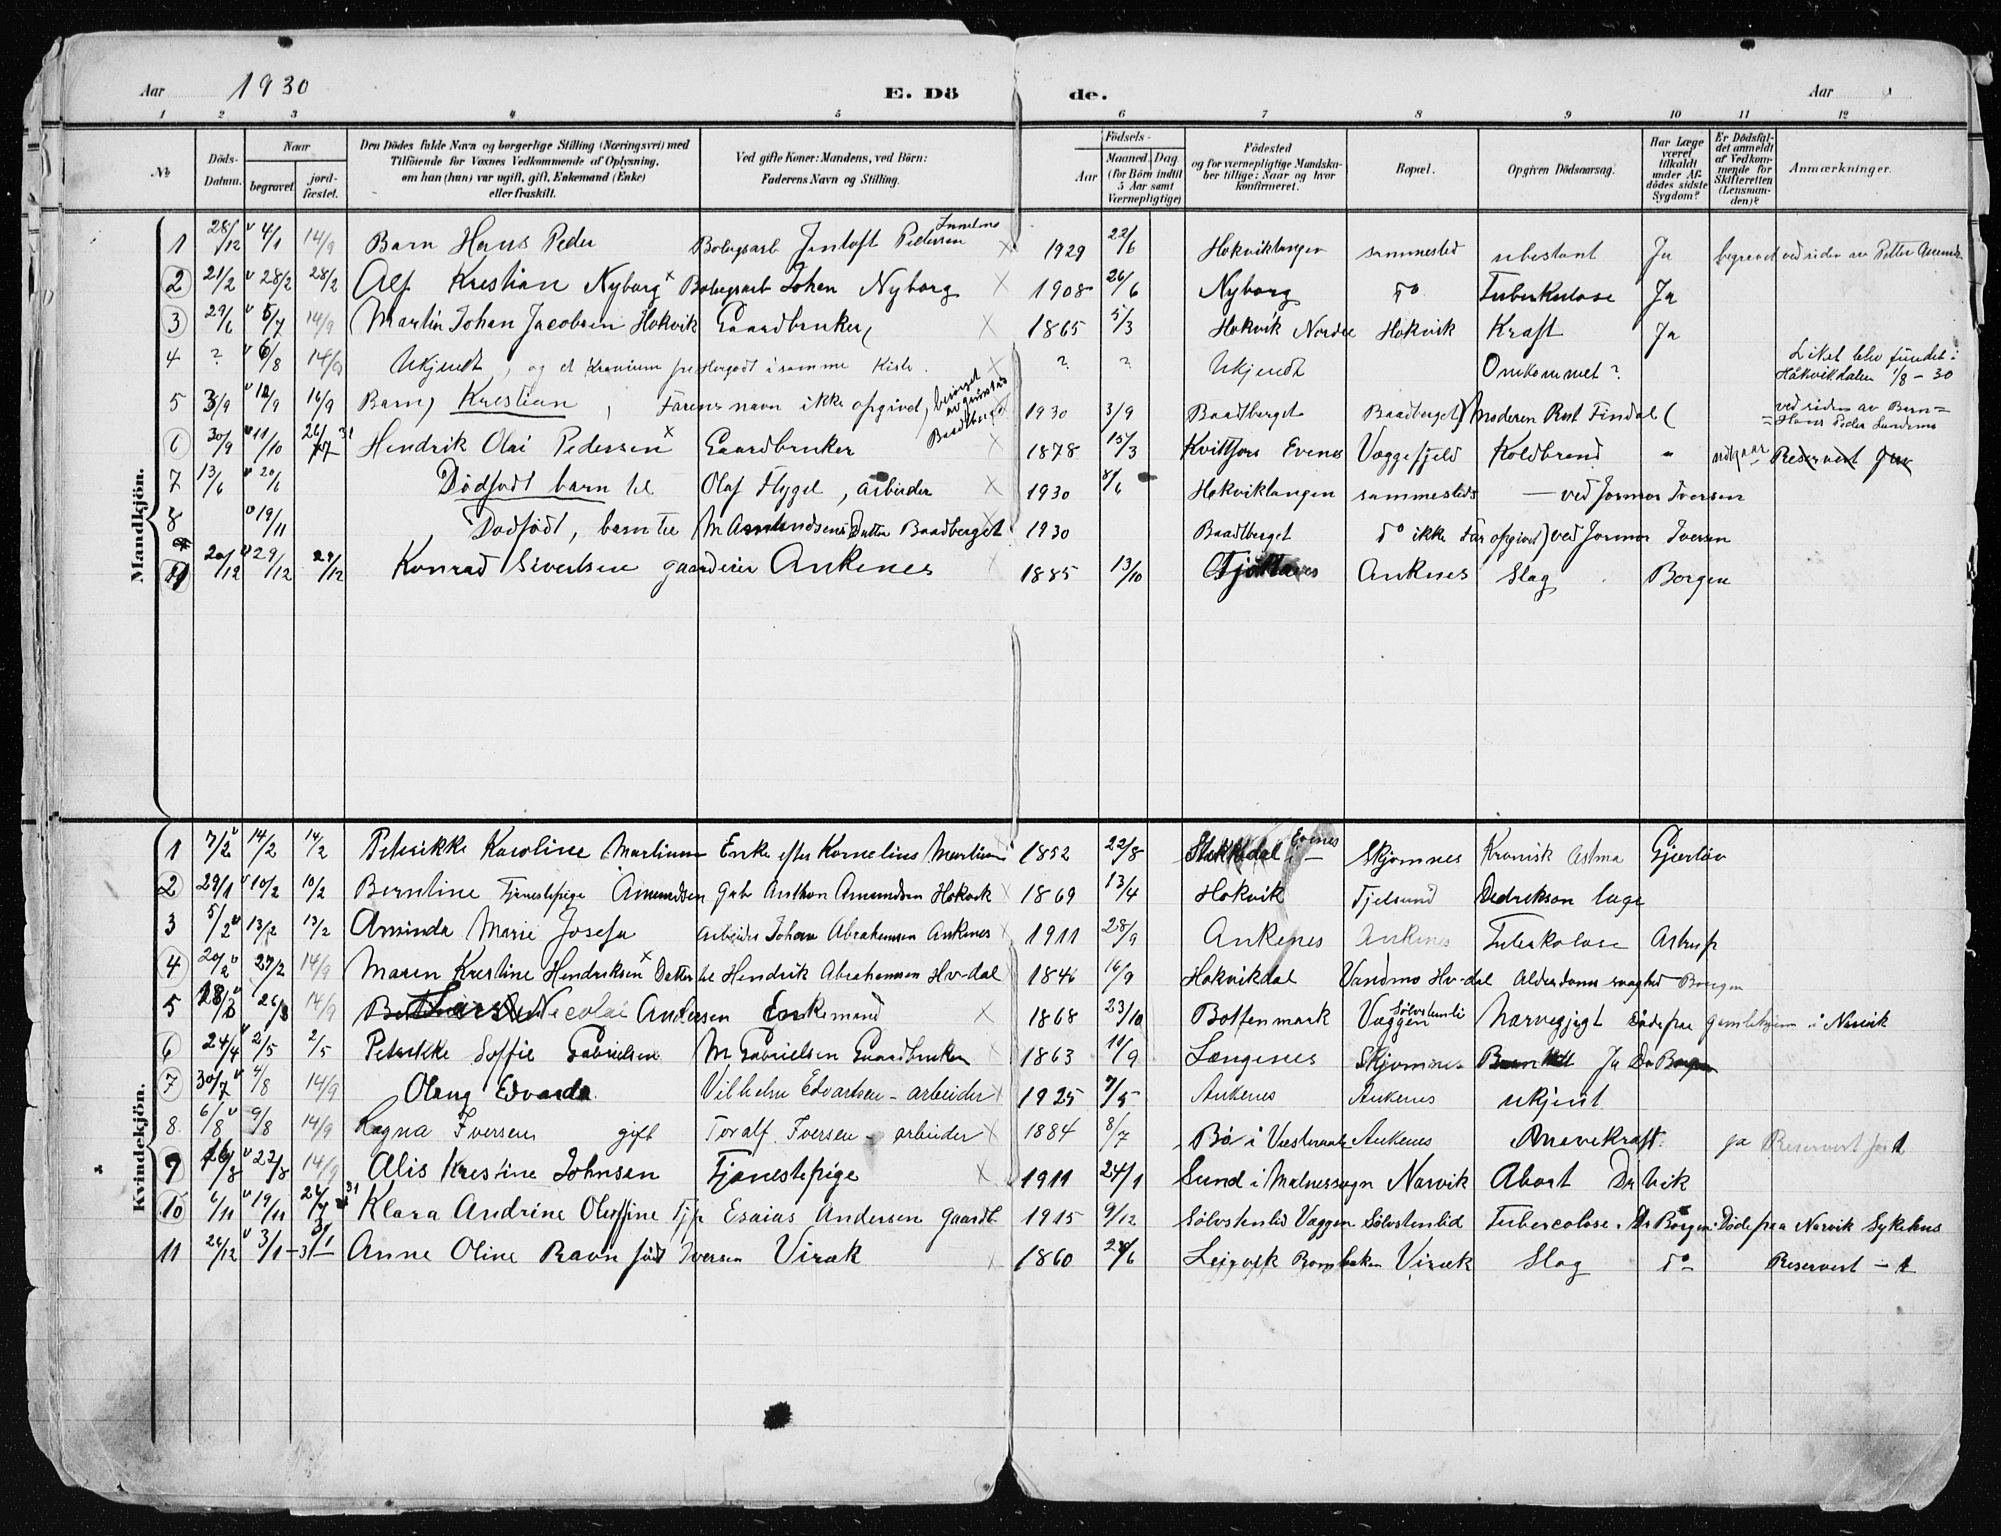 Aar 1930 E. Dö de. Aar
1 2 3 4 5 6 7 8 9 10 11 12
No
Döds-Datum.
Naar
begravet. jord-fæstet.
Den Dödes fulde Navn og borgerlige Stilling (Næringsvei) med
Tilföiende for Voxnes Vedkommende af Oplysning,
om han (hun) var ugift, gift, Enkemand (Enke)
eller fraskilt.
Ved gifte Koner: Mandens, ved Börn:
Faderens Navn og Stilling.
Födsels-
Aar Maaned. Dag.
(for Börn indtil
5 Aar samt
Værnepligtige)
Födested
og for værnepligtige Mandska-
ber tillige: Naar og hvor
konfirmeret.
Bopæl.
Opgiven Dödsaarsag.
Har Læge
været
tilkaldt
under Af-
dödes sidste
Sygdom?
Er Dödsfal-
det anmeldt
af Vedkom-
mende for
Skifteretten
(Lensman-
den)?
Anmærkninger.
Mandkjön.
1 28/12 4/1 14/9 Barn Hans Peder Jentoft Pedersen 1929 22/6 Hokviklangen sammested ubestant Ja begravet ved siden av Petter
2 21/2 28/2 28/2 Alf Kristian Nyborg Johan Nyborg 1908 26/6 Nyborg do Tuberkulose Ja
3 29/6 5/7 14/9 Martin Johan Jacobsen Hokvik Gaardbruker 1865 5/3 Hokvik Nordre Hokvik Kraft Ja
4 ? 6/8 14/9 Ukjendt, og et Kranium i samme Kiste. ? ? Ukjendt Omkommet? Liket blev fundet i
Håkvikdalen 1/8 - 30
5 3/9 12/9 16/9 Barn, Kristian, Farens navn ikke opgivet, Baadberget 1930 3/9 Baadberget Baadberget (Moderen Findal) ved siden av Barn=
=Hans Peder
6 30/9 11/10 26/7 31 Hendrik Olai Pedersen Gaardbruker 1878 15/3 Kvitfors Evenes Væggefjeld Koldbrand " Reservert
7 13/6 20/6 Dødfødt barn til Olaf Flygel, arbeider 1930 8/6 Hokviklangen sammesteds — ved Jormor Iversen
8 19/11 Dødfødt, barn til M Amundsens Datter Baadberget 1930 Baadberget do ikke Far opgivet) ved Jormor Iversen
9 20/12 29/12 29/12 Konrad Sivertsen gaardeier Ankenes 1885 13/10 Ankenes Slag Borgen
Kvindekjön.
1 7/2 14/2 14/2 Petrikke Karoline Enke efter Kornelius 1852 22/8 Evenes Skjomnes Kronisk Astma Gjerløv
2 29/1 10/2 10/2 Berntine Tjenestepige Amundsen Amundsen Hokvik 1869 13/4 Hokvik Tjelsund Dedrikson læge
3 5/2 13/2 13/2 Aminda Marie Josefa Arbeider Johan Abrahamsen Ankenes 1911 28/9 Ankenes Ankenes Tuberkolose Astrup
4 20/2 27/2 14/9 Maren Kristine Hendriksen Datter til Hendrik Abrahamsen Hv-dal 1846 16/9 Hokvikdal Vandmo Hv-dal Alderdoms svaghed Borgen
5 18/3 26/3 14/9 Nicolai Andersen Enkemand 1868 23/10 Botfenmark Sølvstenli Væggen Nærvegjigt Døde paa gamlehjem i Narvik
6 24/4 2/5 2/5 Petrikke Soffie Gabrielsen M Gabrielsen Gaardbruker 1863 11/9 Længenes Skjomnes Ja Dr Borgen
7 30/7 4/8 14/9 Olaug Edvarda Vilhelm Edvartsen - arbeider 1925 7/5 Ankenes Ankenes ukjent
8 6/8 9/8 14/9 Ragna Iversen gift Toralf Iversen - arbeider 1884 8/7 Bø i Vesteraalen Ankenes Mavekræft. ja Reservert
9 16/8 22/8 14/9 Alis Kristine Johnsen Tjenestepige 1911 24/1 Sund i Malnessogn Narvik Abort Dr Vik
10 6/11 19/11 26/7 31 Klara Andrine Olufine Tjp Esaias Andersen Gaardb 1915 9/12 Sølvstenlid Væggen Sølvstenlid Tubercolose. Dr Borgen. Døde paa Narvik Sykehus
11 26/12 3/1 - 3/1 31 Anne Oline Ravn født Iversen Virak 1860 28/6 Leirvik Virak Slag do Reservert - 1